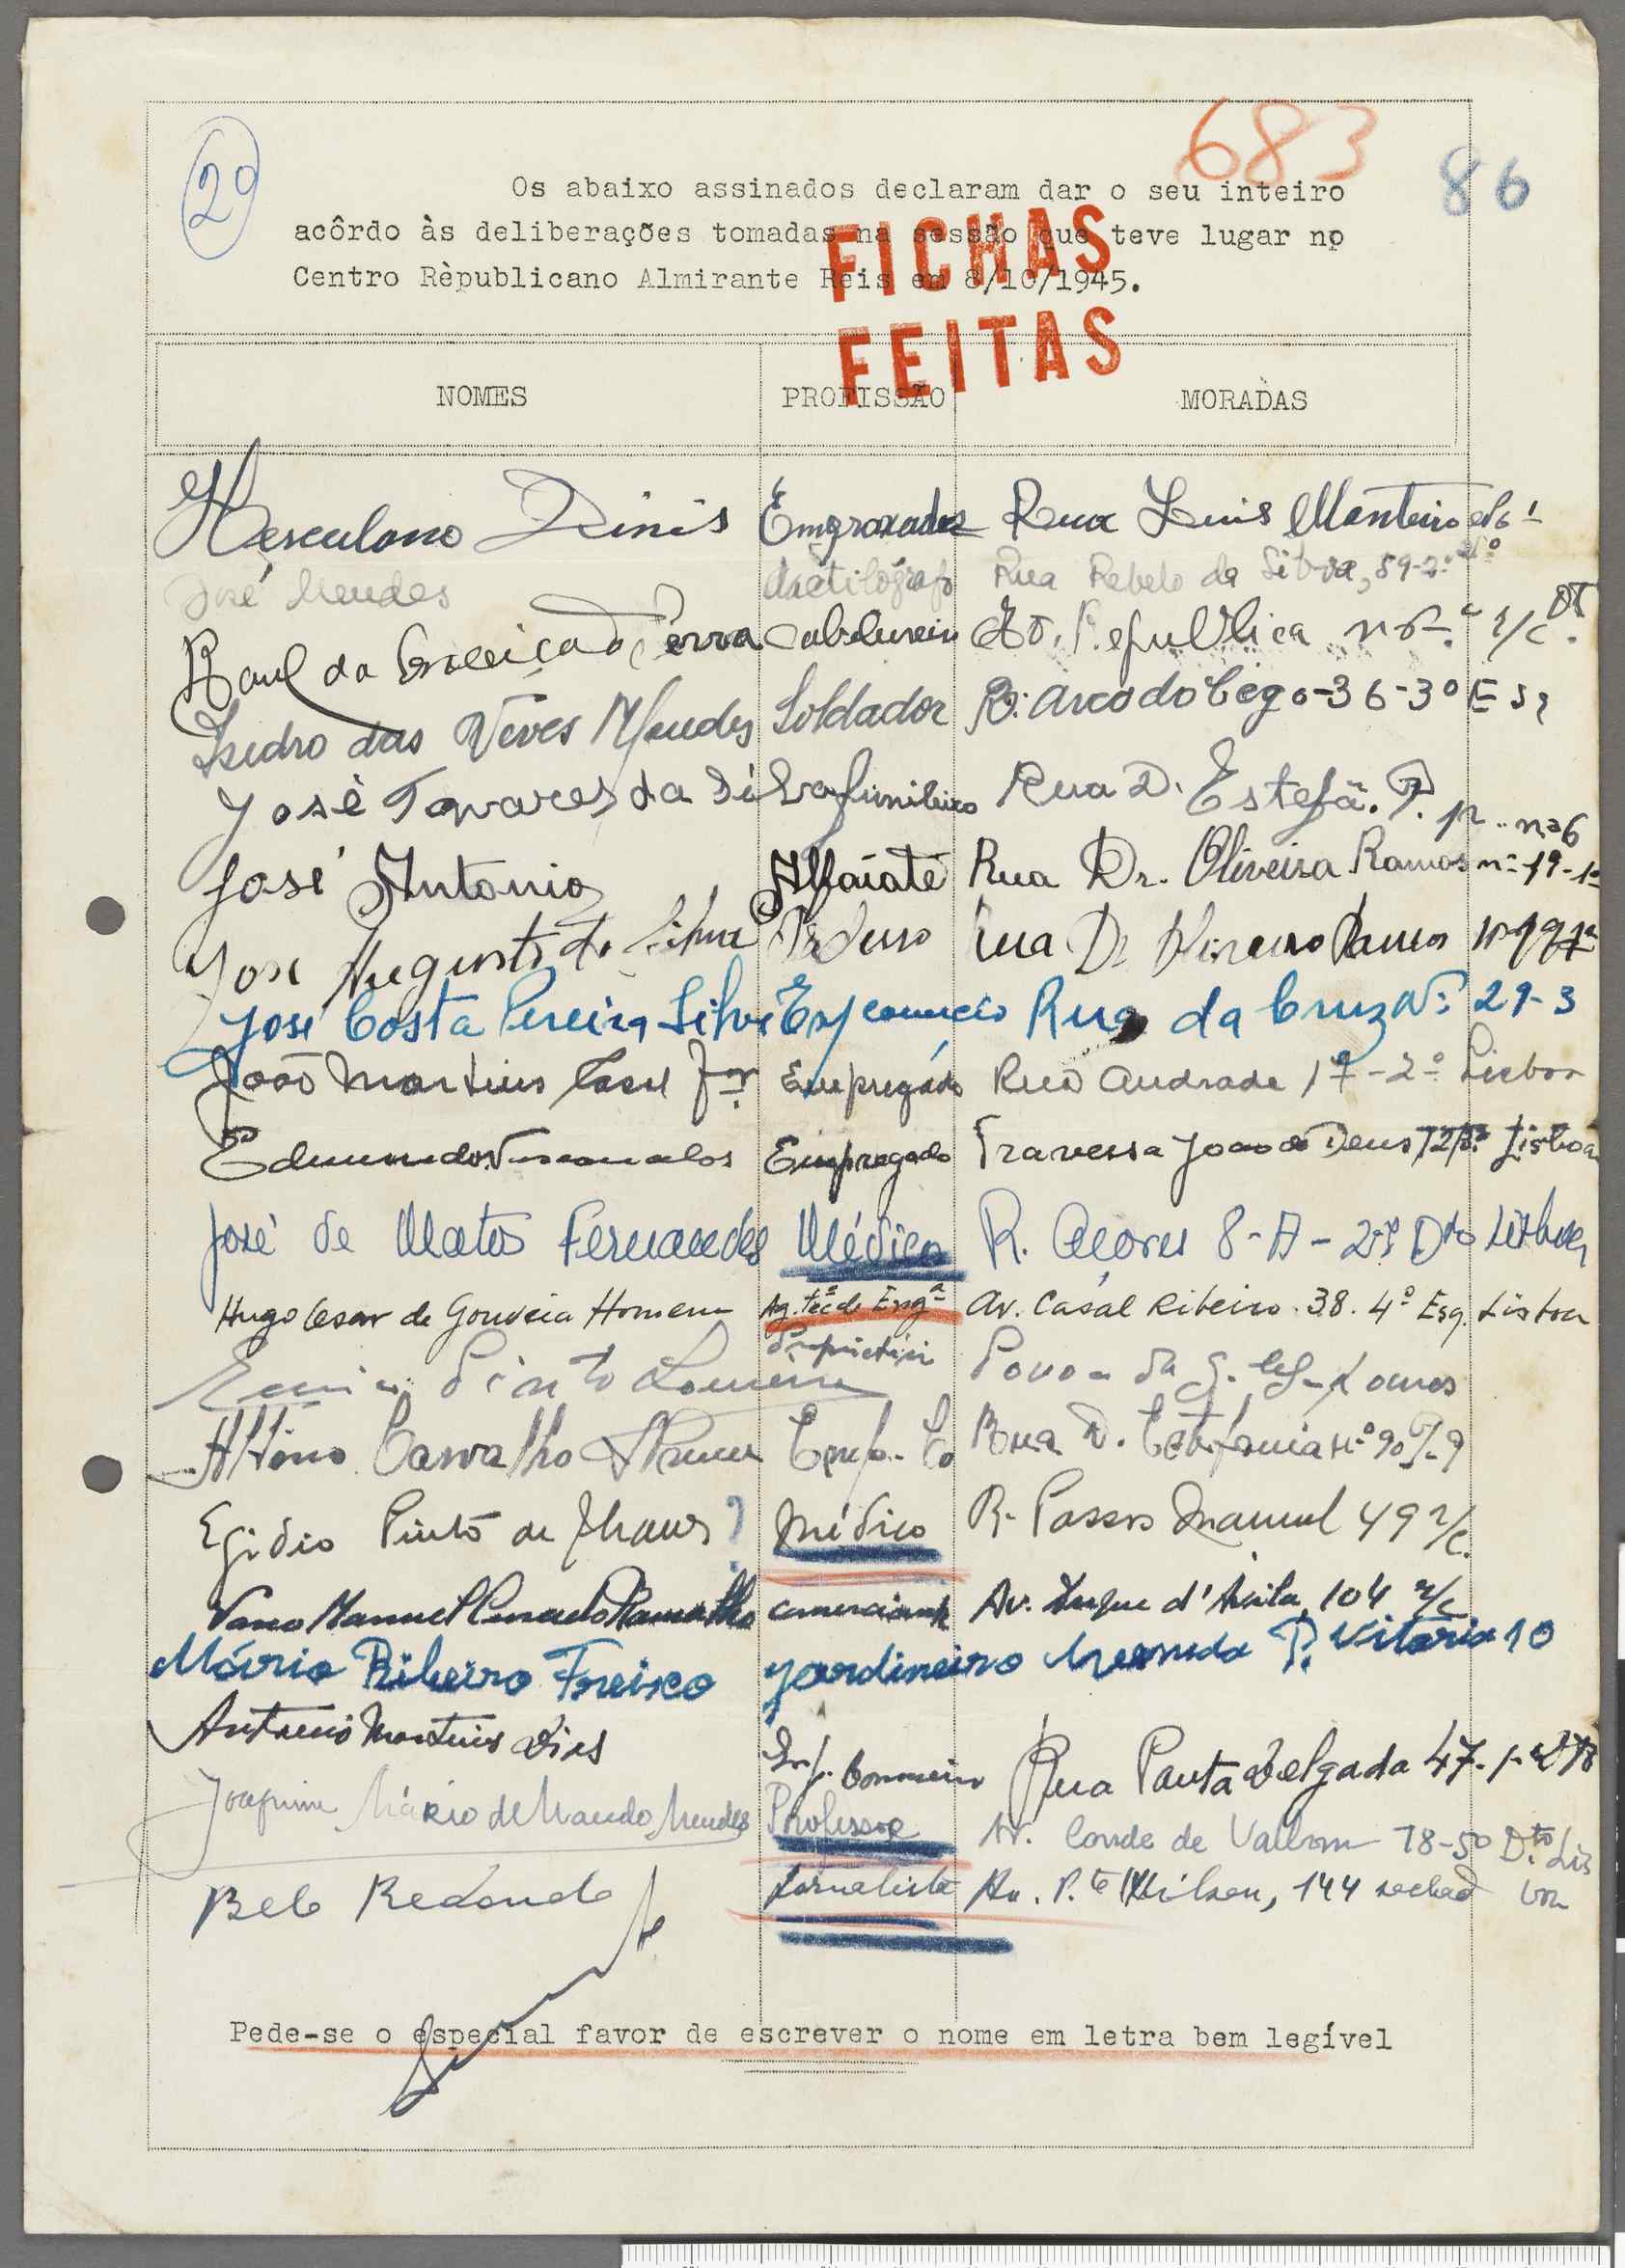 683
86
20
Os abaixo assinados declaram dar o seu inteiro
acôrdo às deliberações tomadas na sessão que teve lugar no
Centro Rèpublicano Almirante Reis em 8/10/1945.
FICHAS
FEITAS
NOMES PROFISSÃO MORADAS
Herculano Dinis Engraxador Rua Luis Monteiro
José Mendes dactilógrafo Rua Rebelo da Silva, 59-2º
Raul da Conceição Serra Av. Republica r/c
Isidro das Neves Mendes Soldador R. Arco do Cego-36-3º Esq
José Tavares da Silva funileiro Rua D. Estefâ.
José Antonio Alfaiate Rua Dr. Oliveira Ramos nº 19-1º
José Augusto da Silva Rua Dr Oliveira Ramos
José Costa Pereira Silva Emp comercio Rua da Cruz Nº 29-3
João Martins Jor Empregado Rua Andrade 17-2º Lisboa
Edmundo Vasconcelos Empregado Travessa João de Deus Lisboa
José de Matos Fernandes Médico R. Açores 8-A-2º Dto Lisboa
Hugo Cesar de Gouveia Homem Ag. Téc. de Engª Av. Casal Ribeiro. 38. 4º Esq. Lisboa
Pinto Proprietário
Carvalho Emp. Co Rua D. Estefania nº 90
Egidio Pinto de Médico R. Passos Manuel 49 r/c.
Vasco Manuel Ramalho comerciante Av. Duque d'Avila, 104 r/c
Mário Ribeiro jardineiro P. Vitória 10
Antonio Martins Dias Rua Ponta Delgada 47
Joaquim Mário de Mendes Professor Av. Conde de Valbom 78-5º Dto. Lisboa
Belo Redondo Jornalista Av. P.te Wilson, 144
Pede-se o especial favor de escrever o nome em letra bem legível